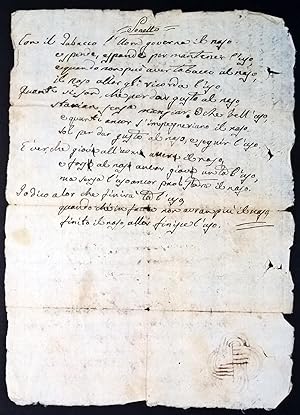 Sonetto
Con il Tabacco l'Uom governa il naso,
e spende, e spande per mantener l'uso
e quando non può aver tabacco al naso,
il naso allor gli ricorda l'uso.
Quanti vi son che per dar gusto al naso
starien senza mangiar. Oche bell'uso
e quanti ancor s'impegneriano il naso,
sol per dar gusto al naso, e seguir l'uso.
E perche giova all'uomo il naso,
e al naso ancor giova l'uso,
ma senza l'uso ancor il naso.
Io dico a lor che finirà tal uso,
quando che in non avran più il naso
finito il naso, allor finisce l'uso.